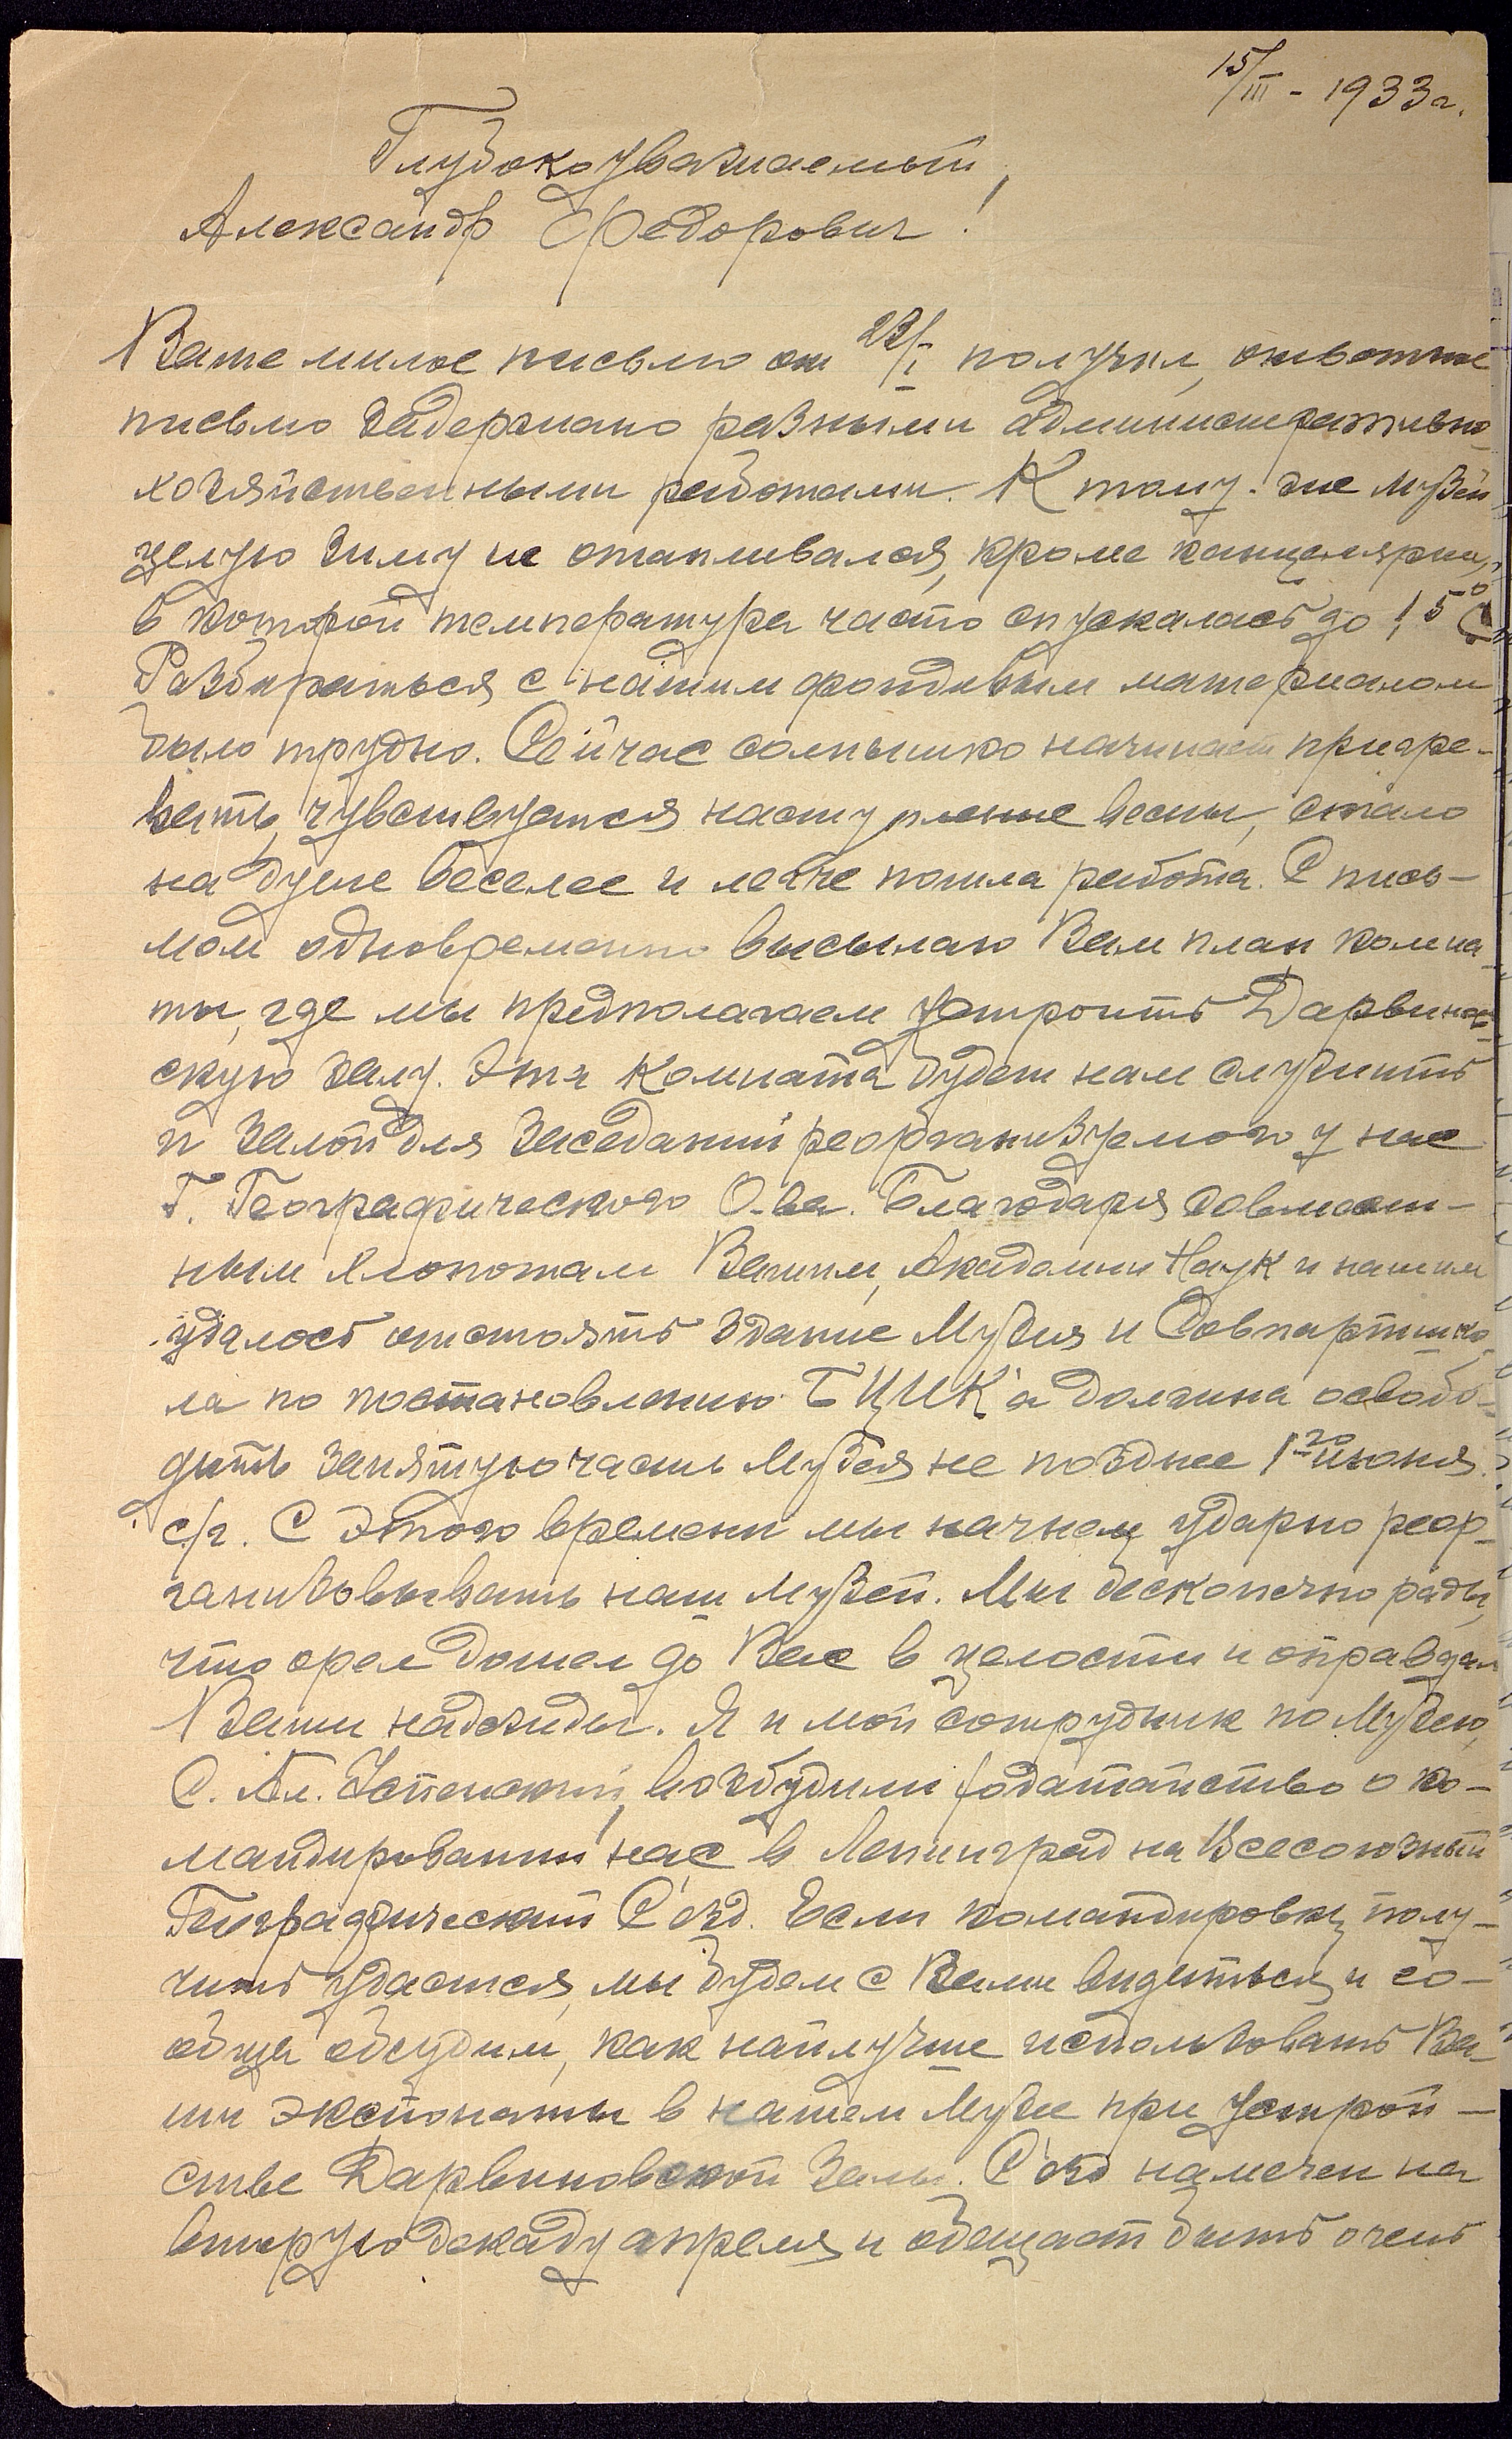 15/III - 1933 г.
Глубокоуважаемый
Александр Федорович!
Ваше милое письмо от 22/I получил, ответное
письмо задержано разными административно
хозяйственными работами. К тому-же Музей
целую зиму не отапливался, кроме канцелярии,
в которой температура часто спускалась до 1,5° С
Разбираться с нашим фондовым материалом
было трудно. Сейчас солнышко начинает пригре-
вать, чувствуется наступление весны, стало
на душе веселее и легче пошла работа. С пись-
мом одновременно высылаю Вам план комна
ты, где мы предполагаем устроить Дарвинов-
скую залу. Эта комната будет нам служить
и залой для заседаний реорганизуемого у нас
Г. Географического О-ва. Благодаря совмест-
ным хлопотам Вашим, Академии Наук и нашим
удалось отстоять здание Музея и Совпартшко
ла по постановлению БЦИК'а должна освобо-
дить занятую часть Музея не позднее 1-го июня
с/г. С этого времени мы начнем ударно реор-
ганизовывать наш Музей. Мы бесконечно рады,
что орел дошел до Вас в целости и оправдал
Ваши надежды. Я и мой сотрудник по Музею,
С. Ал. Успенский, возбудили ходатайство о ко-
мандировании нас в Ленинград на Всесоюзный
Географический С'езд. Если командировку полу-
чить удастся, мы будем с Вами видеться и со-
обща обсудим, как найлучше использовать Ва-
ши экспонаты в нашем Музее при устрой-
стве Дарвиновской залы. С'езд намечен на
вторую декаду апреля и обещает быть очень